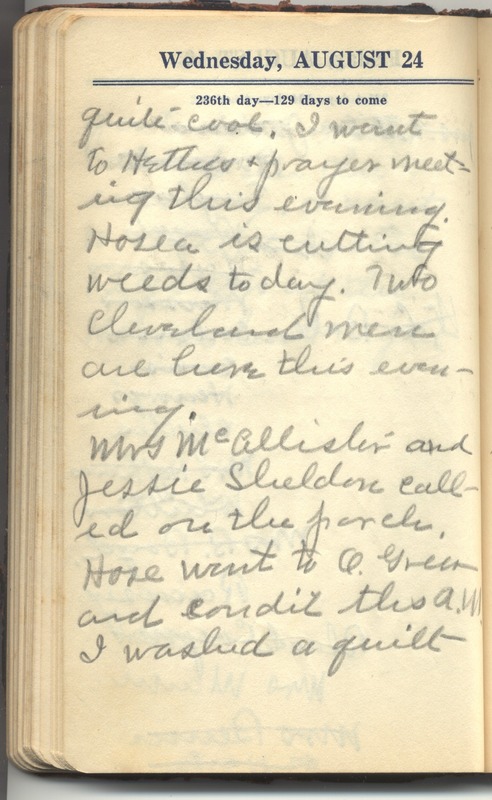 Wednesday, AUGUST 24
236th day—129 days to come
quite cool. I went
to Hetties + prayer meet=
ing this evening.
Hosea is cutting
weeds today. Two
Cleveland men
are here this even-
ing.
Mrs McAllister and
Jessie Sheldon call-
ed on the porch.
Hose went to O. Green
and Condit this A.M
I washed a quilt